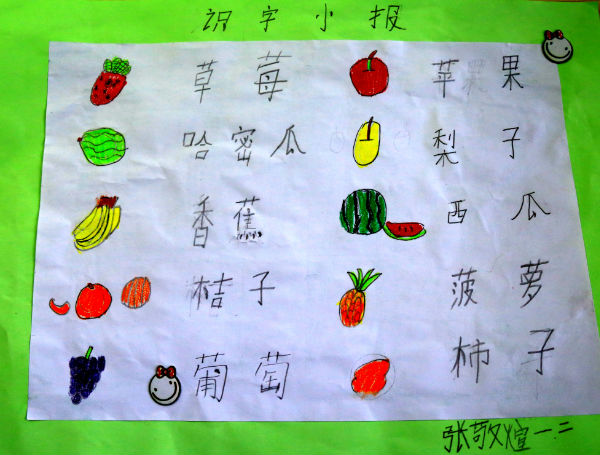 识字小报
草莓 苹果
哈密瓜 梨子
香蕉 西瓜
桔子 菠萝
葡萄 柿子
张敬煊一.二